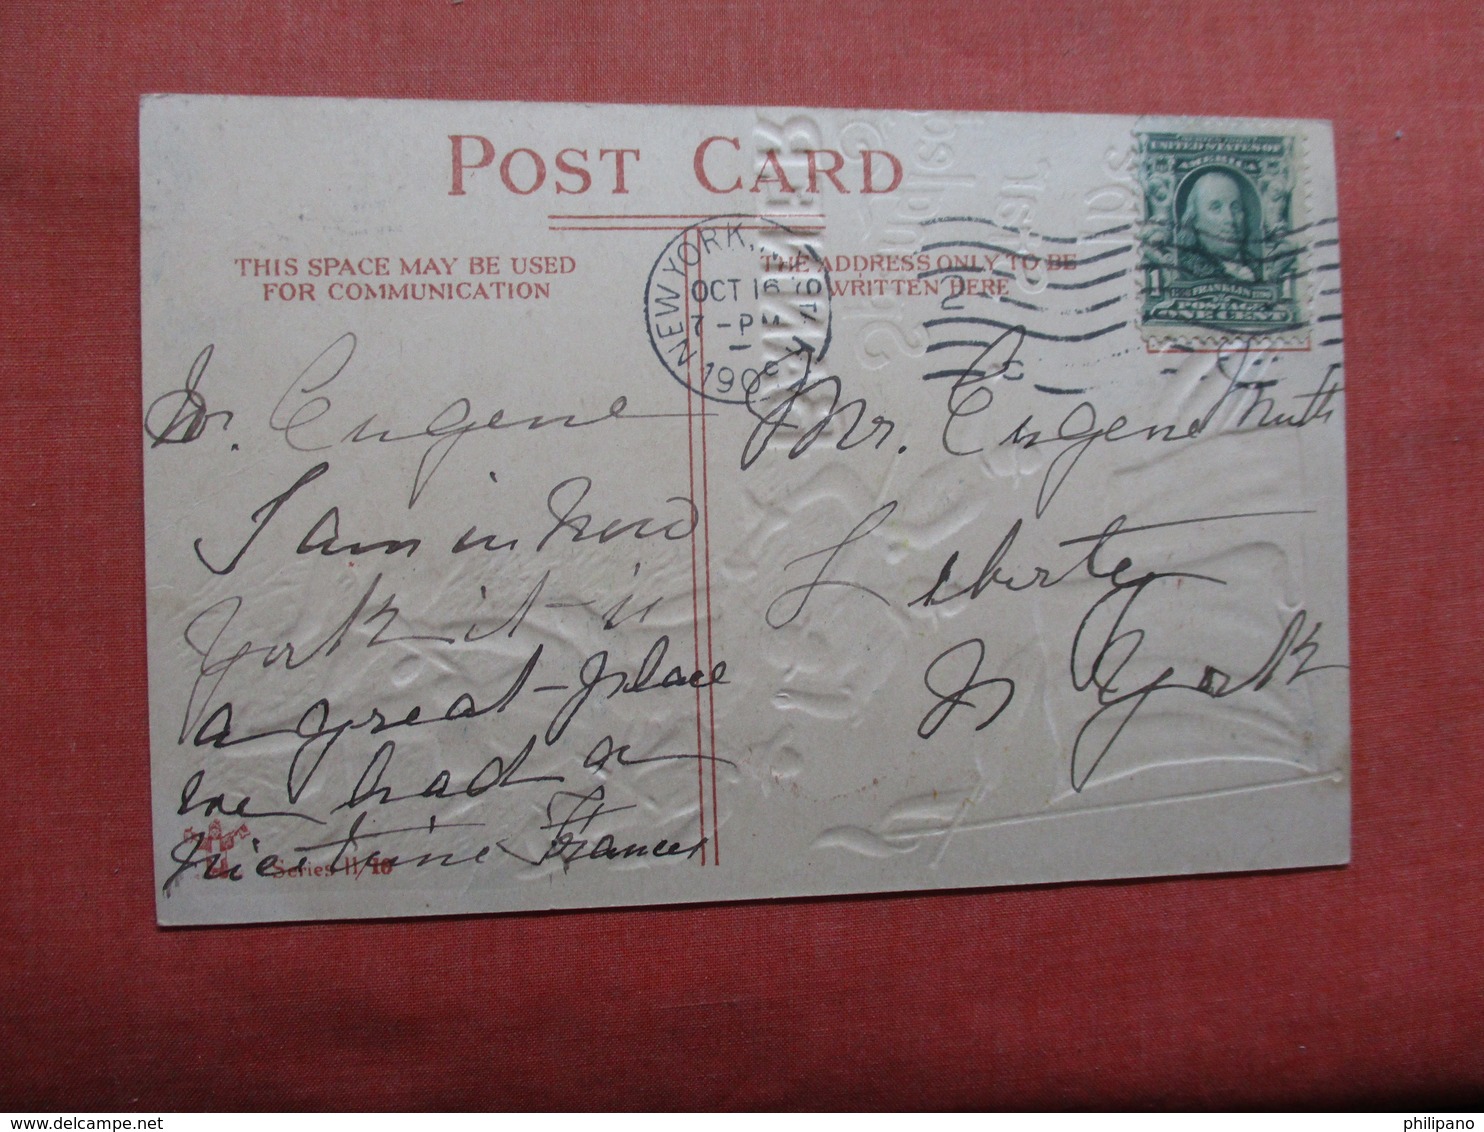 POST CARD
THIS SPACE MAY BE USED
FOR COMMUNICATION
THE ADDRESS ONLY TO BE
WRITTEN HERE
NEW YORK, N.Y.
OCT 16
7-PM
190
2
UNITED STATES OF
AMERICA
1 1
FRANKLIN
POSTAGE
ONE CENT
BbbmR
Eugene
I am in New
York it is
a great place
we had a
time Frances
Series II/10
Mr. Eugene
Liberty
N York
philipano